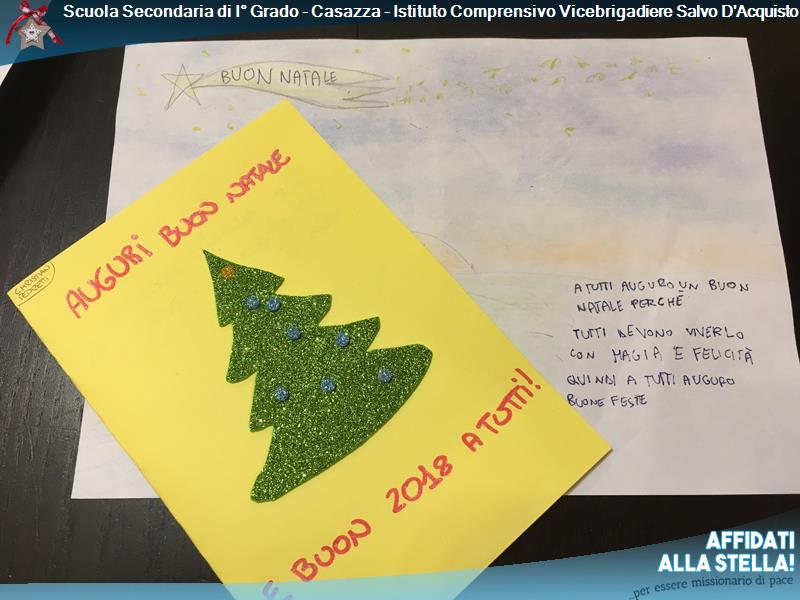 Scuola Secondaria di I° Grado - Casazza - Istituto Comprensivo Vicebrigadiere Salvo D'Acquisto
BUON NATALE
CHRISTIAN
AUGURI BUON NATALE
E BUON 2018 A TUTTI!
A TUTTI AUGURO UN BUON
NATALE PERCHÈ
TUTTI DEVONO VIVERLO
CON MAGIA E FELICITÀ
QUINDI A TUTTI AUGURO
BUONE FESTE
AFFIDATI
ALLA STELLA!
..per essere missionario di pace